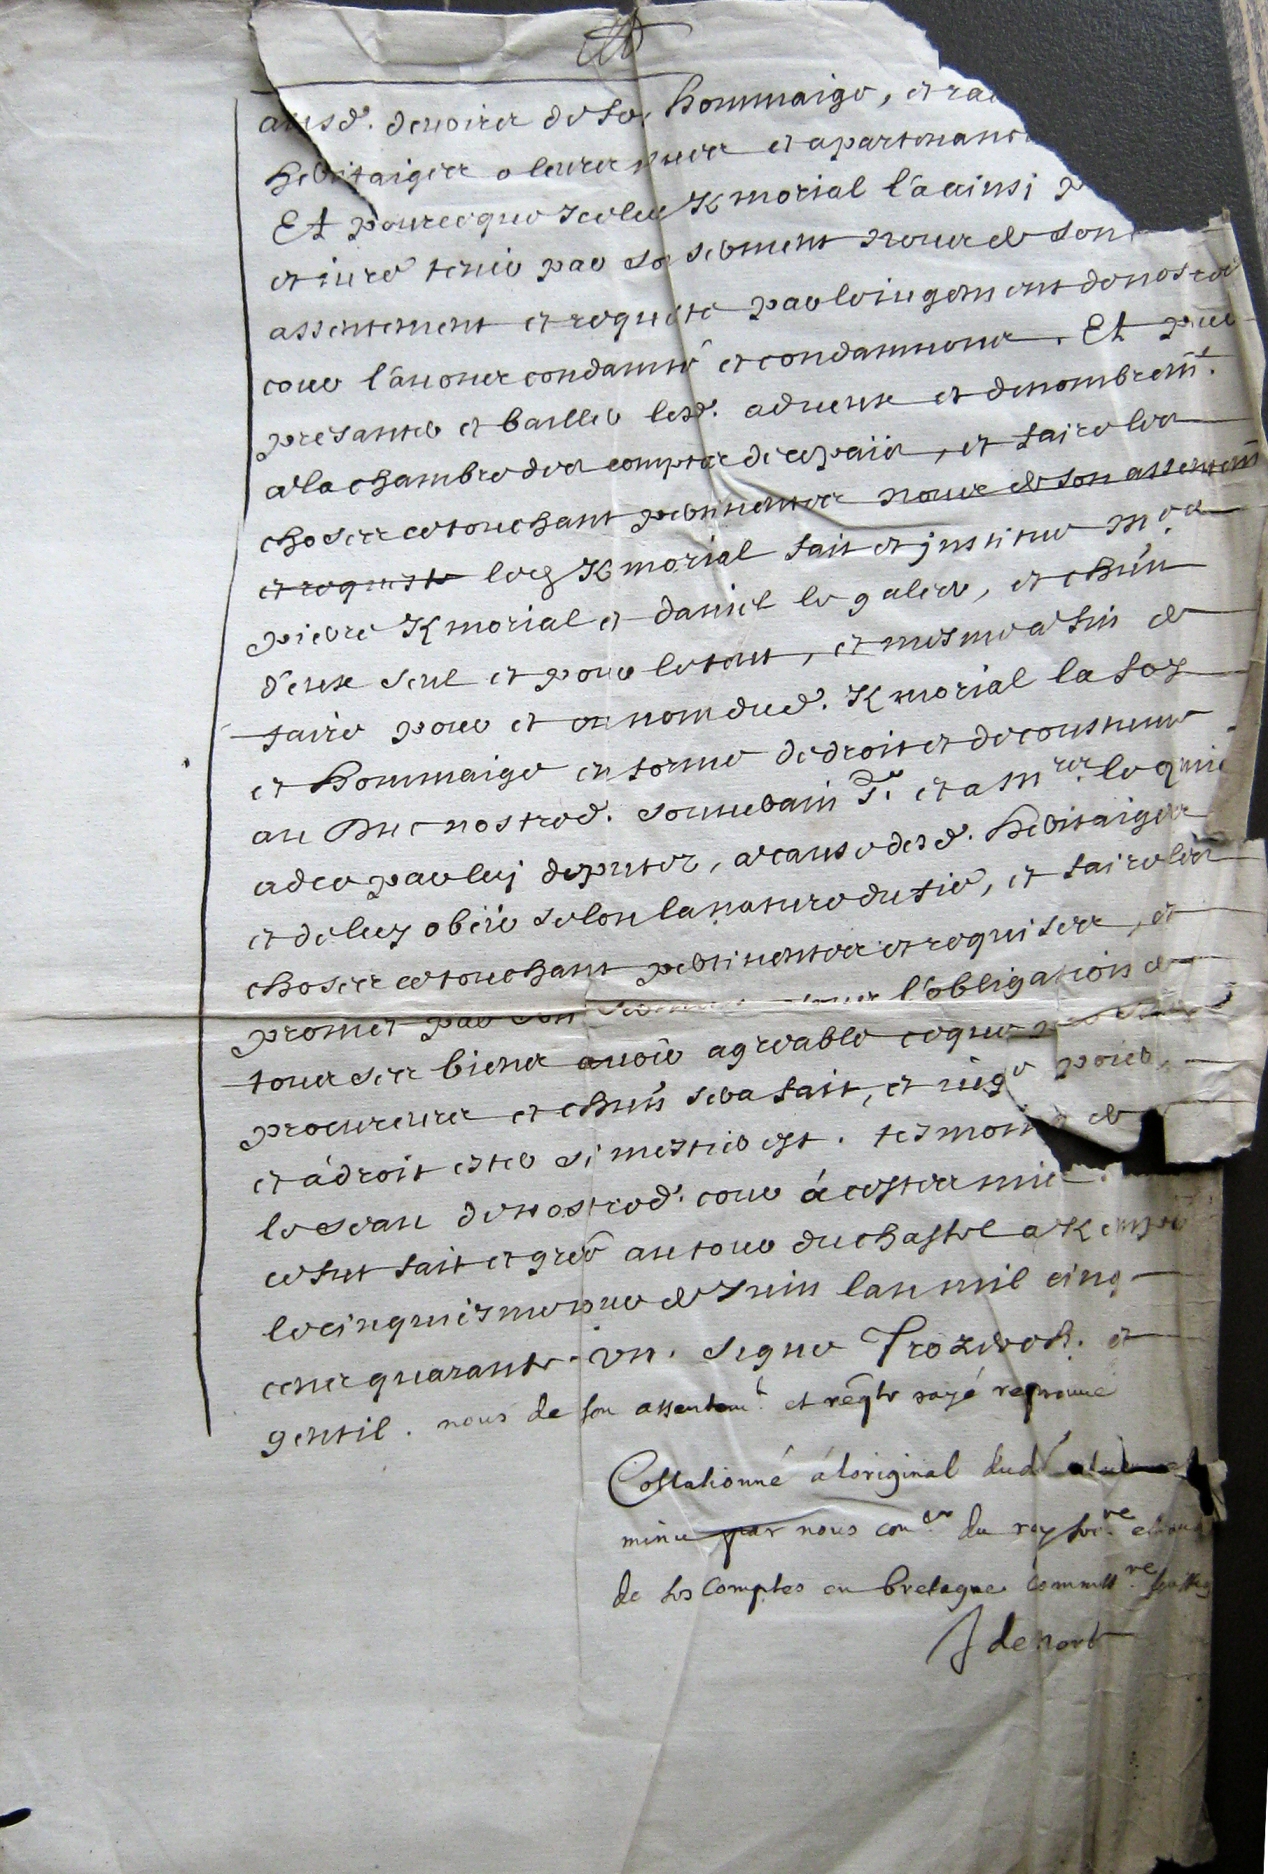 ausd. devoirs de foy, hommaige, et rac
heritaiges o leurs yssues et apartenances
Et pourceque Iceluy Kmorial l'a ainsi
et iuré tenir par so serment nous de son
assentement et requeste par le iugement de nostre
cour l'avons condamné et condamnons. Et pour
présanter et bailler lesd. adveux et denombremt.
a la chambre des comptes de ce païs, et faire les
choses ce touchant pertinentes nous de son assentemt
et requeste led Kmorial fait et jnstitue Mes
pierre Kmorial et daniel le gales, et chūn
d'eux seul et pour le tout, et mesme a fin de
faire pour et on nom dud. Kmorial la foy
et hommaige en forme de droit et de coustume
au Duc nostred. souverain Sr. et a Mrs. le
ad ce par luy deputez, a cause desd. heritaiges
et de luy obéir selon la nature du fié, et faire les
choses ce touchant pertinentes et requises, et
promet par son serment sous l'obligation de
tous ses biens avoir agreable ceque
procureurs et chūn sera fait, et iugé poier,
et à droit ester si mestier est. tesmoing de
le seau de nostred. cour à ces ter mis.
ce fut fait et gréé au tour du chastel a Kemper
le cinquiesme jour de Juin l'an mil cinq
cens quarante-un. Signé Trozerch. et
gentil. nous de son assentemt. et reqte rayé reprouvé
Collationné à l'original dud
minu par nous coner. du roy
de ses Comptes en bretagne Commissre.
J denort